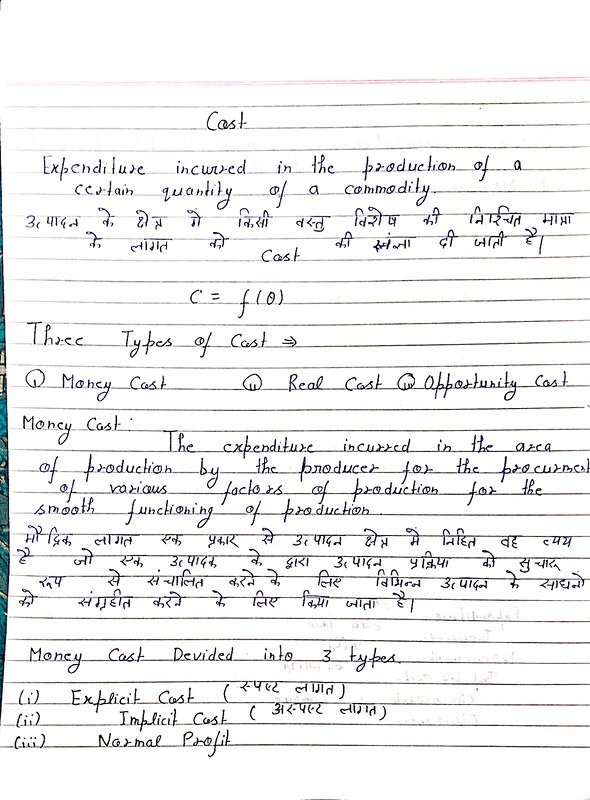 Cost
Expenditure incurred in the production of a
certain quantity of a commodity.
उत्पादन के क्षेत्र मे किसी वस्तु विशेष की निश्चित मात्रा
के लागत को Cost की संज्ञा दी जाती है।
C = f(θ)
Three Types of Cost ⇒
(i) Money Cost (ii) Real Cost (iii) Opportunity Cost
Money Cost :
The expenditure incurred in the area
of production by the producer for the procurment
of various factors of production for the
smooth functioning of production.
मौद्रिक लागत एक प्रकार से उत्पादन क्षेत्र में निहित वह व्यय
है जो एक उत्पादक के द्वारा उत्पादन प्रक्रिया को सुचारू
रूप से संचालित करने के लिए विभिन्न उत्पादन के साधनो
को संगृहीत करने के लिए किया जाता है।
Money Cost Devided into 3 types.
(i) Explicit Cost (स्पष्ट लागत)
(ii) Implicit Cost (अस्पष्ट लागत)
(iii) Normal Profit